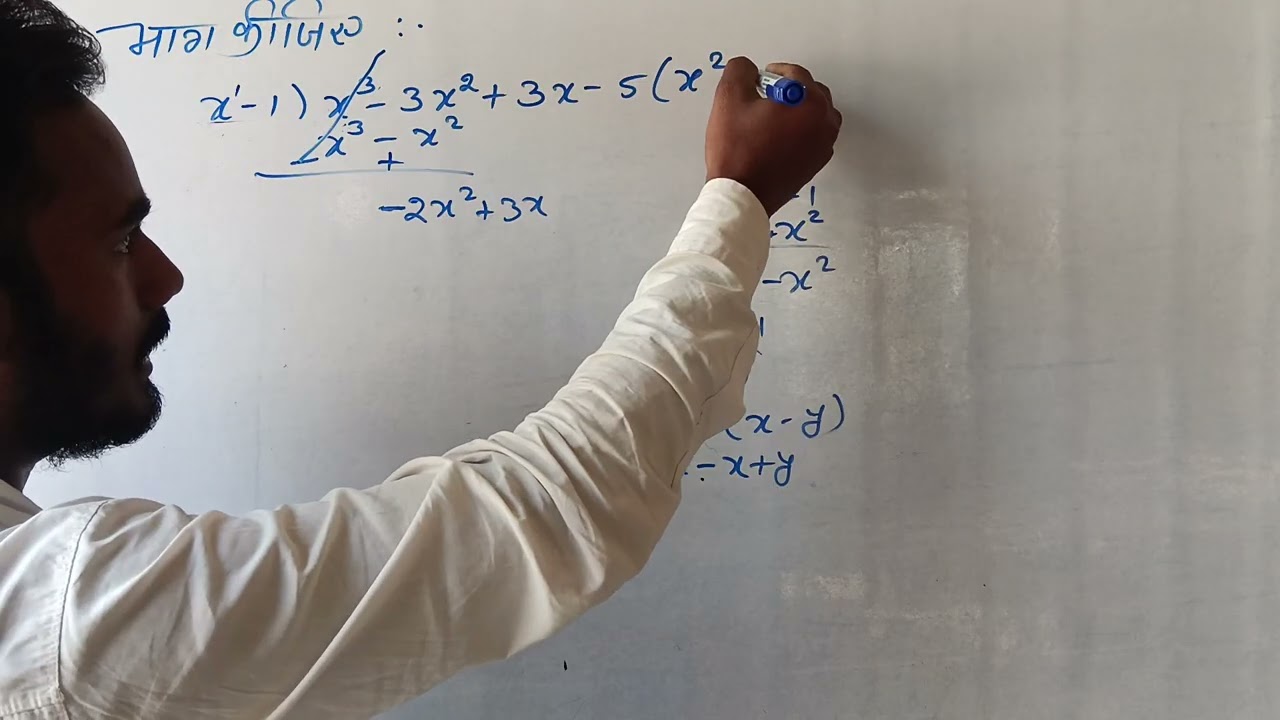 भाग कीजिए :-
x¹-1) x³ - 3x² + 3x - 5 (x²
-x³ - x²
+
-2x² + 3x
-1
-x²
-x²
1
(x-y)
-x+y